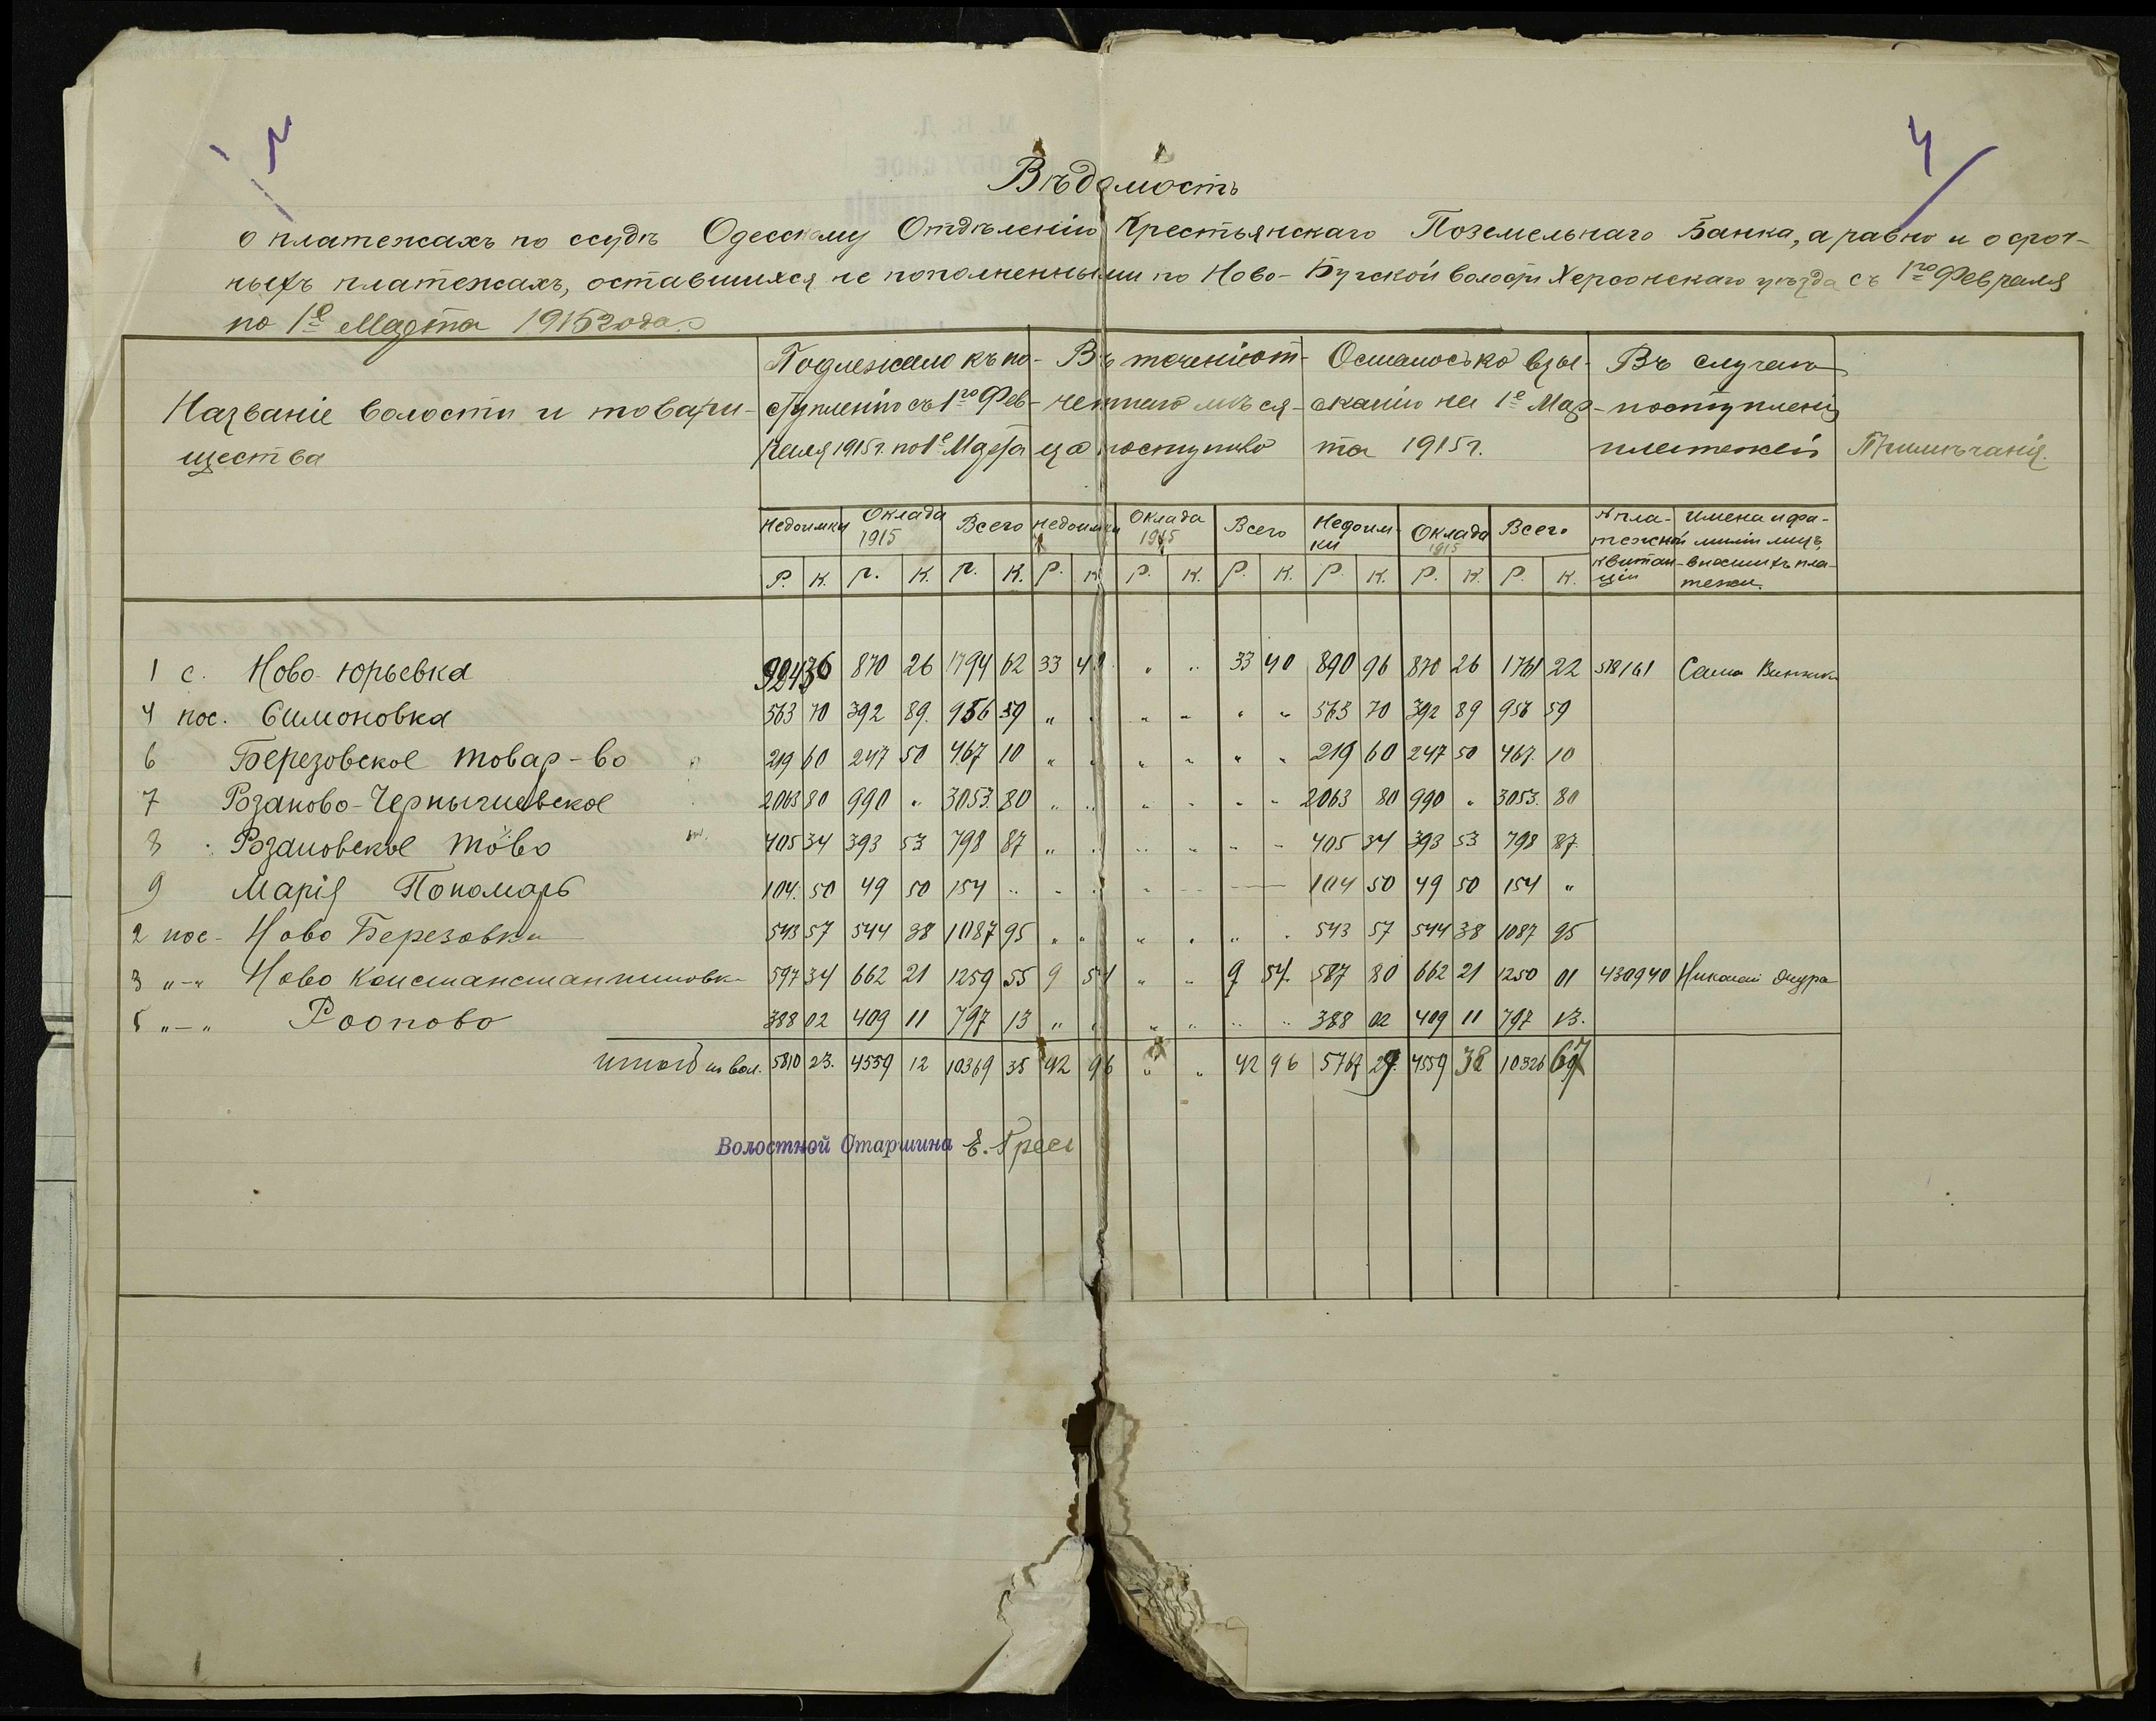 4
Вѣдомость
о платежахъ по ссудѣ Одесскому Отдѣленію Крестьянскаго Поземельнаго Банка, а равно и о сроч-
ныхъ платежахъ, оставшихся не пополненными по Ново-Бугской волости Херсонскаго уѣзда съ 1го Февраля
по 1е Марта 1915 года.
Названіе волости и товари-
щества
Подлежало къ по-
ступленію съ 1го Фев-
раля 1915 г. по 1е Марта
Въ теченіи от-
четнаго мѣся-
ца поступило
Осталось ко взы-
сканію на 1е Мар-
та 1915 г.
Въ случаѣ
поступленія
платежей
Примѣчанія.
Недоимки Оклада 1915 Всего Недоимки Оклада 1915 Всего Недоим-ки Оклада 1915 Всего
№ пла-
тежной
квитан-
ціи
Имена и фа-
миліи лицъ,
вносившихъ пла-
тежи.
Р. К. Р. К. Р. К. Р. К. Р. К. Р. К. Р. К. Р. К. Р. К.
1 с. Ново-Юрьевка 924 36 870 26 1794 62 33 40 „ „ 33 40 890 96 870 26 1761 22 518161 Сама
4 пос. Симоновка 563 70 392 89. 956 59 „ „ „ „ „ „ 563 70 392 89 956 59
6 Березовское товар-во 219 60 247 50 467 10 „ „ „ „ „ „ 219 60 247 50 467. 10
7 Розаново-Чернычиевское 2063 80 990 „ 3053. 80 „ „ „ „ „ „ 2063 80 990 „ 3053. 80
8 Розановское то-во 405 34 393 53 798 87 „ „ „ „ „ „ 405 34 393 53 798 87.
9 Марія Пономарь 104. 50 49 50 154 „ „ „ „ „ — 104 50 49 50 154 „
2 пос- Ново Березовка 543 57 544 38 1087 95 „ „ „ „ „ „ 543 57 544 38 1087 95
3 „-„ Ново Констанстантиновк- 597 34 662 21 1259 55 9 54 „ „ 9 54. 587 80 662 21 1250 01 430940 Николай
5 „-„ Роопово 388 02 409 11 797 13 „ „ „ „ „ „ 388 02 409 11 797 13.
Итого по вол. 5810 23. 4559 12 10369 35 42 96 „ „ 42 96 5767 29. 4559 38 10326 67
Волостной Старшина Е. Гресь